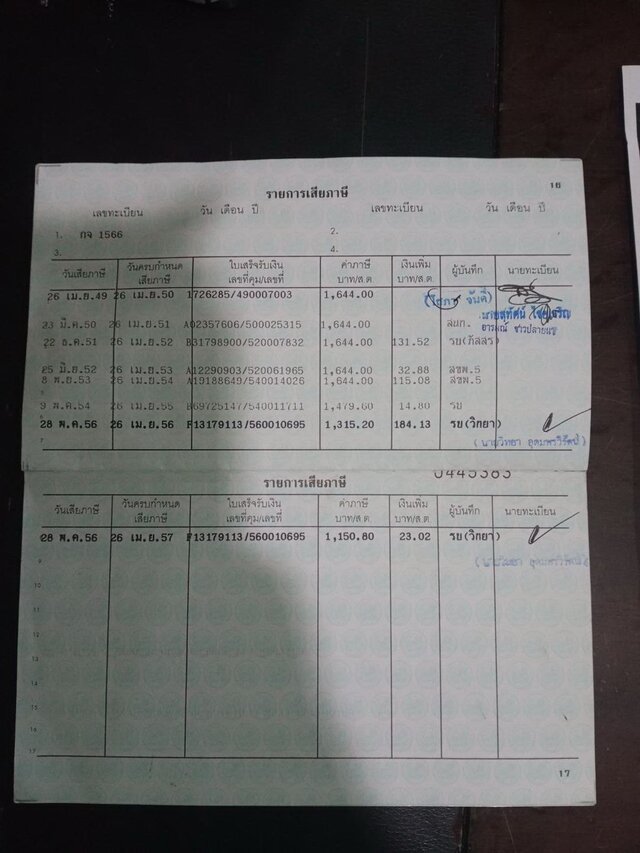 16
รายการเสียภาษี
เลขทะเบียน วัน เดือน ปี เลขทะเบียน วัน เดือน ปี
1. กจ 1566 2.
3. 4.
วันเสียภาษี วันครบกำหนดเสียภาษี ใบเสร็จรับเงิน เลขที่คุม/เลขที่ ค่าภาษี บาท/ส.ต. เงินเพิ่ม บาท/ส.ต. ผู้บันทึก นายทะเบียน
26 เม.ย.49 26 เม.ย.50 1726285/490007003 1,644.00
23 มี.ค.50 26 เม.ย.51 A02357606/500025315 1,644.00
22 ธ.ค.51 26 เม.ย.52 B31798900/520007832 1,644.00 131.52 รย(ภัสสร)
25 มิ.ย.52 26 เม.ย.53 A12290903/520061965 1,644.00 32.88 สขพ.5
8 พ.ย.53 26 เม.ย.54 A19188649/540014026 1,644.00 115.08 สขพ.5
9 พ.ค.54 26 เม.ย.55 B69725147/540011711 1,479.60 14.80 รย
28 พ.ค.56 26 เม.ย.56 F13179113/560010695 1,315.20 184.13 รย(วิทยา)
7
0445383
รายการเสียภาษี
วันเสียภาษี วันครบกำหนดเสียภาษี ใบเสร็จรับเงิน เลขที่คุม/เลขที่ ค่าภาษี บาท/ส.ต. เงินเพิ่ม บาท/ส.ต. ผู้บันทึก นายทะเบียน
28 พ.ค.56 26 เม.ย.57 F13179113/560010695 1,150.80 23.02 รย(วิทยา)
9
10
11
12
13
14
15
16
17
17